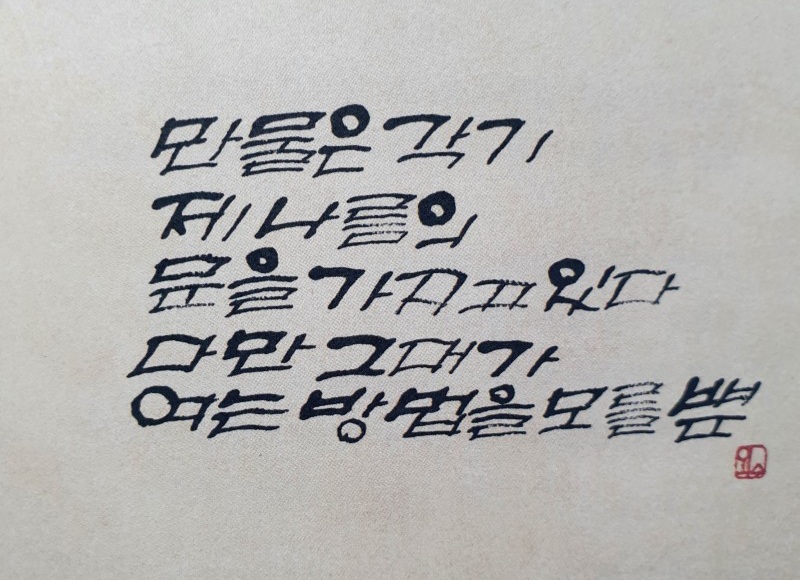 만물은 각기
제 나름의
문을 가지고 있다
다만 그대가
여는 방법을 모를 뿐